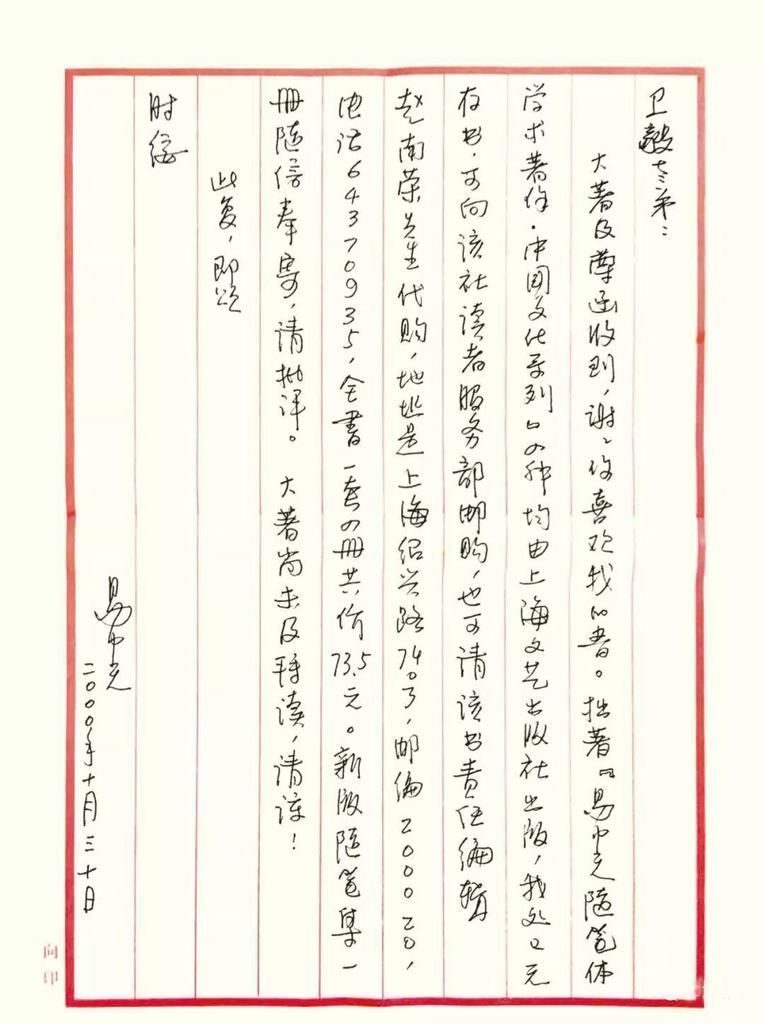 卫毅老弟：
大著及尊函收到，谢谢你喜欢我的书。拙著『易中天随笔体
学术著作·中国文化系列』四种均由上海文艺出版社出版，我处已无
存书，可向该社读者服务部邮购，也可请该书责任编辑
赵南荣先生代购，地址是上海绍兴路74号，邮编200020，
电话64370935，全书一套四册共价73.5元。新版随笔集一
册随信奉寄，请批评。大著尚未及拜读，请谅！
此复，即颂
时绥
易中天
二〇〇〇年十月三十日